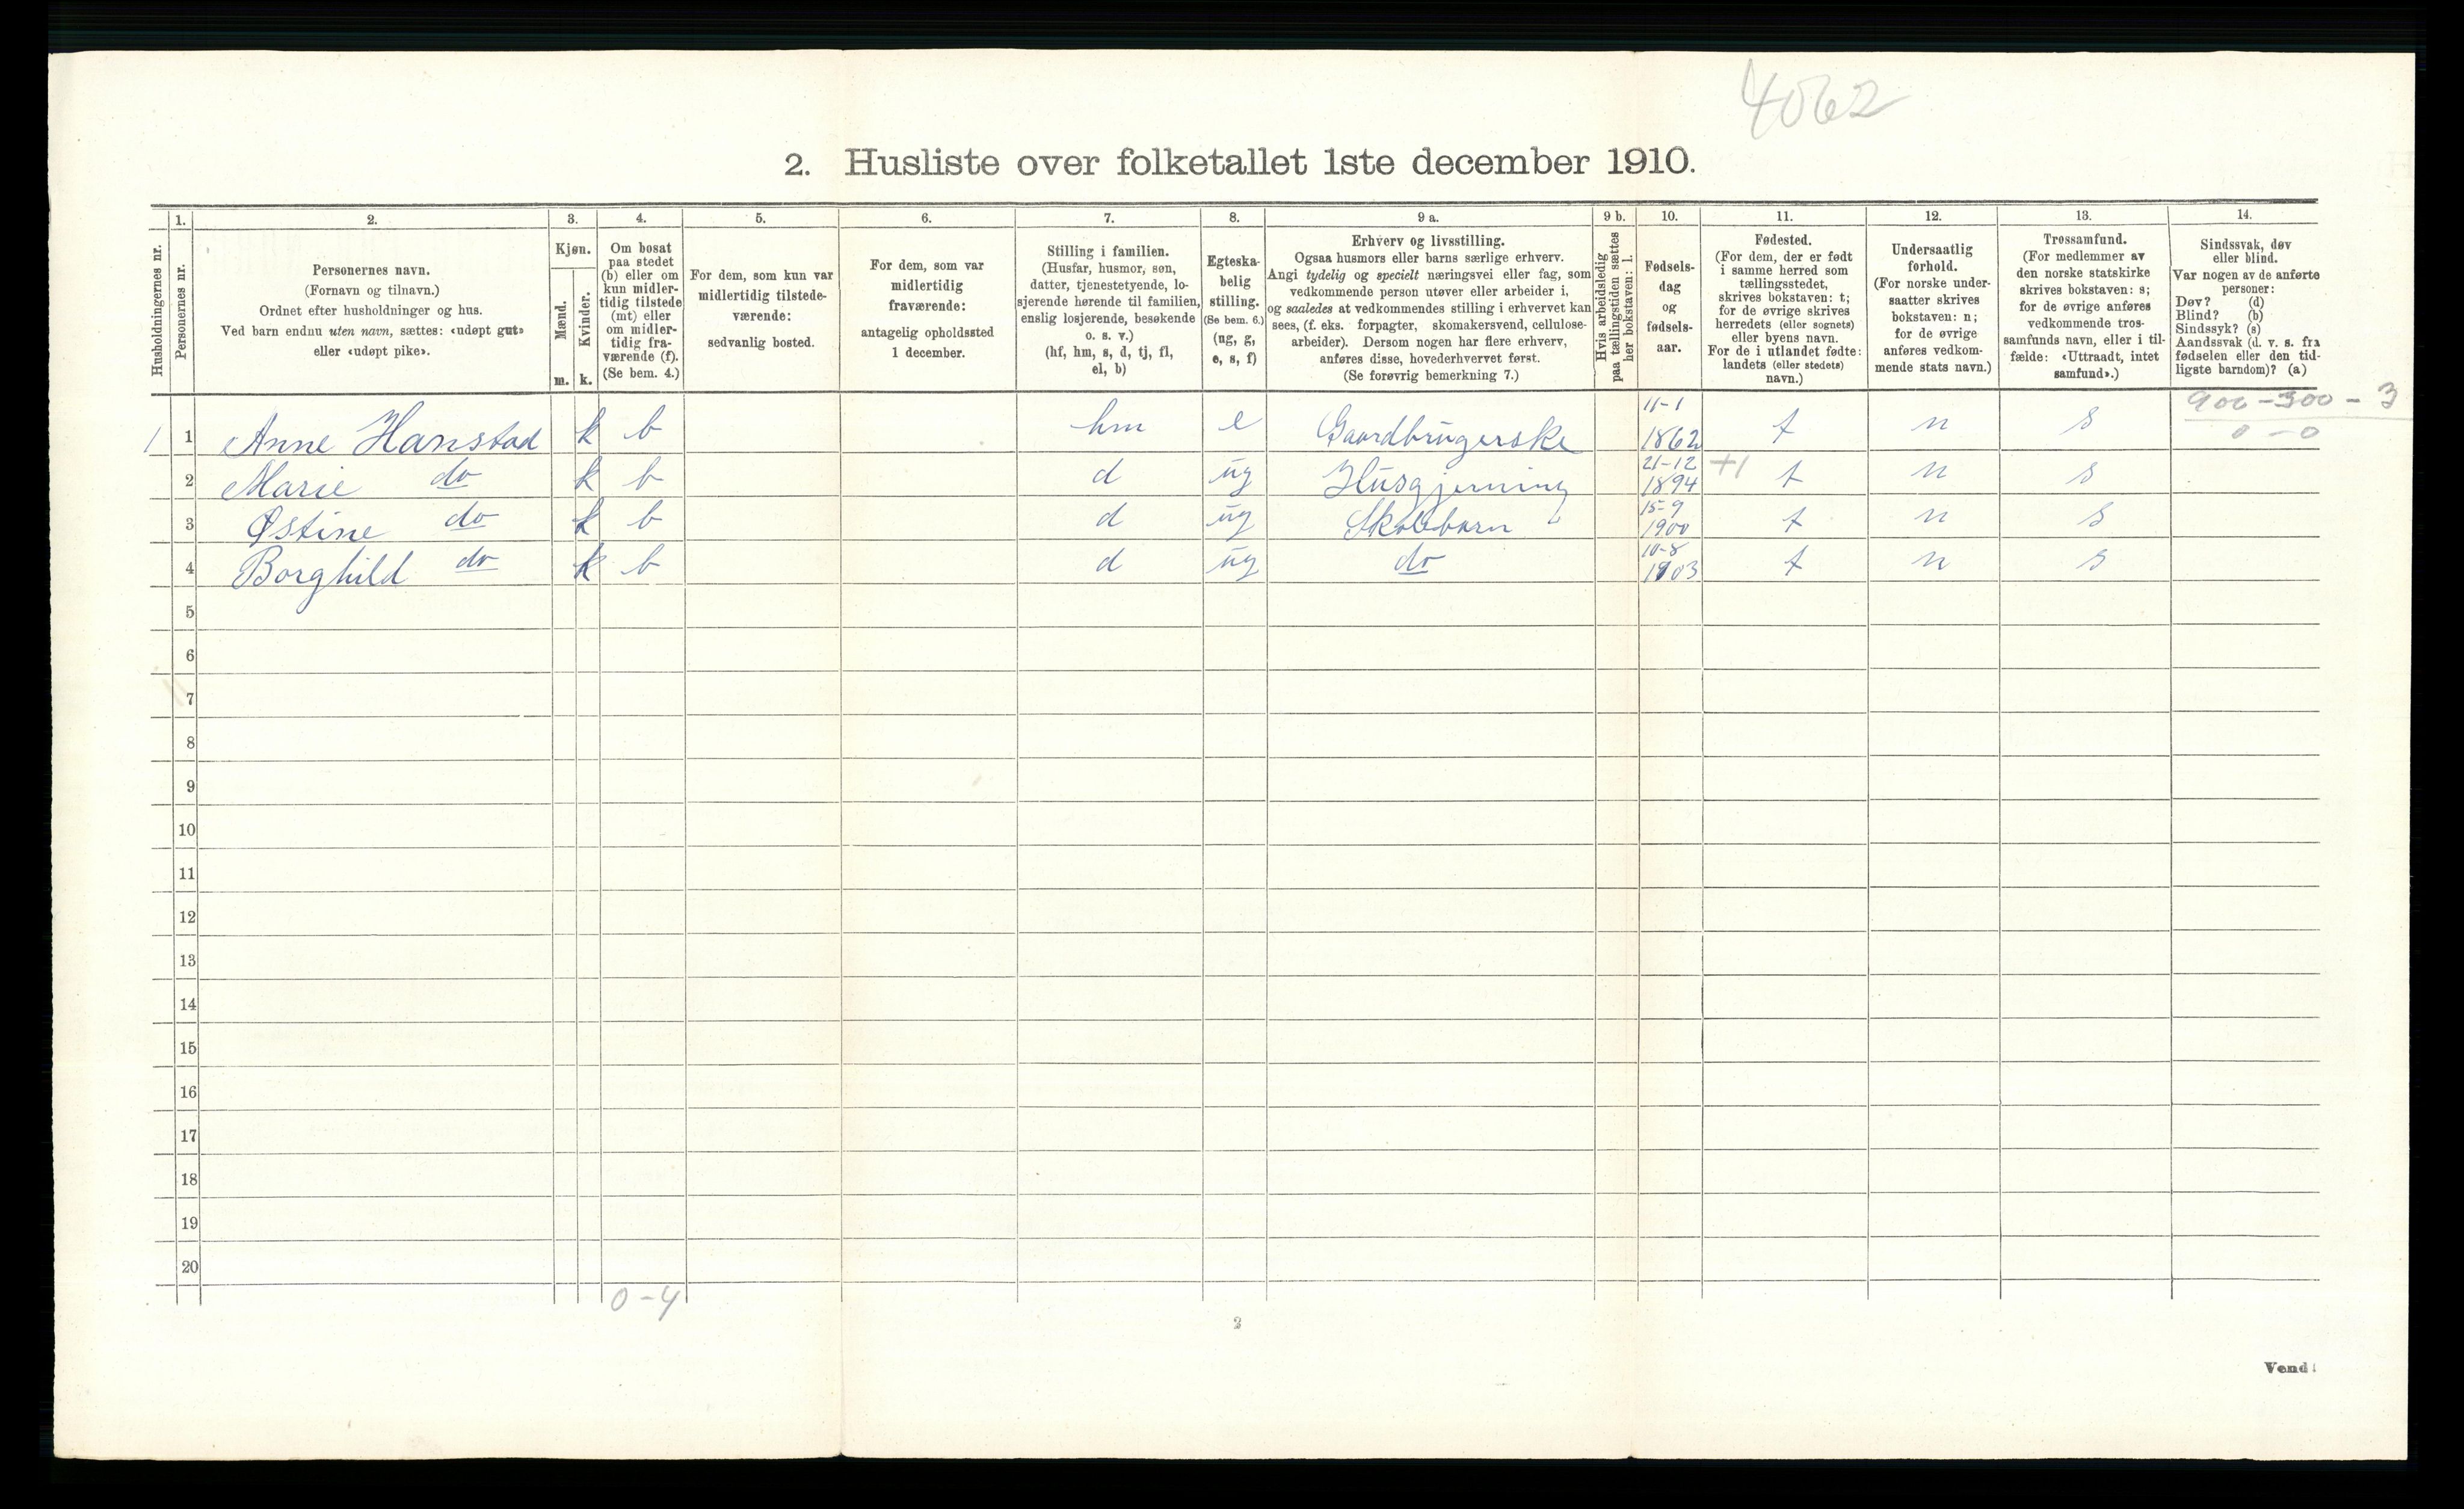 4062
2. Husliste over folketallet 1ste december 1910.
Husholdningernes nr.
1.
Personernes nr.
2.
Personernes navn.
(Fornavn og tilnavn.)
Ordnet efter husholdninger og hus.
Ved barn endnu uten navn, sættes: «udøpt gut»
eller «udøpt pike».
3.
Kjøn.
Mænd.
Kvinder.
m. k.
4.
Om bosat
paa stedet
(b) eller om
kun midler-
tidig tilstede
(mt) eller
om midler-
tidig fra-
værende (f).
(Se bem. 4.)
5.
For dem, som kun var
midlertidig tilstede-
værende:
sedvanlig bosted.
6.
For dem, som var
midlertidig
fraværende:
antagelig opholdssted
1 december.
7.
Stilling i familien.
(Husfar, husmor, søn,
datter, tjenestetyende, lo-
sjerende hørende til familien,
enslig losjerende, besøkende
o. s. v.)
(hf, hm, s, d, tj, fl,
el, b)
8.
Egteska-
belig
stilling.
(Se bem. 6.)
(ug, g,
e, s, f)
9 a.
Erhverv og livsstilling.
Ogsaa husmors eller barns særlige erhverv.
Angi tydelig og specielt næringsvei eller fag, som
vedkommende person utøver eller arbeider i,
og saaledes at vedkommendes stilling i erhvervet kan
sees, (f. eks. forpagter, skomakersvend, cellulose-
arbeider). Dersom nogen har flere erhverv,
anføres disse, hovederhvervet først.
(Se forøvrig bemerkning 7.)
9 b.
Hvis arbeidsledig
paa tællingstiden sættes
her bokstaven: l.
10.
Fødsels-
dag
og
fødsels-
aar.
11.
Fødested.
(For dem, der er født
i samme herred som
tællingsstedet,
skrives bokstaven: t;
for de øvrige skrives
herredets (eller sognets)
eller byens navn.
For de i utlandet fødte:
landets (eller stedets)
navn.)
12.
Undersaatlig
forhold.
(For norske under-
saatter skrives
bokstaven: n;
for de øvrige
anføres vedkom-
mende stats navn.)
13.
Trossamfund.
(For medlemmer av
den norske statskirke
skrives bokstaven: s;
for de øvrige anføres
vedkommende tros-
samfunds navn, eller i til-
fælde: «Uttraadt, intet
samfund».)
14.
Sindssvak, døv
eller blind.
Var nogen av de anførte
personer:
Døv? (d)
Blind? (b)
Sindssyk? (s)
Aandssvak (d. v. s. fra
fødselen eller den tid-
ligste barndom)? (a)
900-300-3
0-0
1 1 Anne Hanstad k b hm e Gaardbrugerske 11-1 1862 t n s
2 Marie do k b d ug Husgjerning 21-12 1894 +1 t n s
3 Østine do k b d ug Skolebarn 15-9 1900 t n s
4 Borghild do k b d ug do 10-8 1903 t n s
5
6
7
8
9
10
11
12
13
14
15
16
17
18
19
20
0-4
2
Vend!